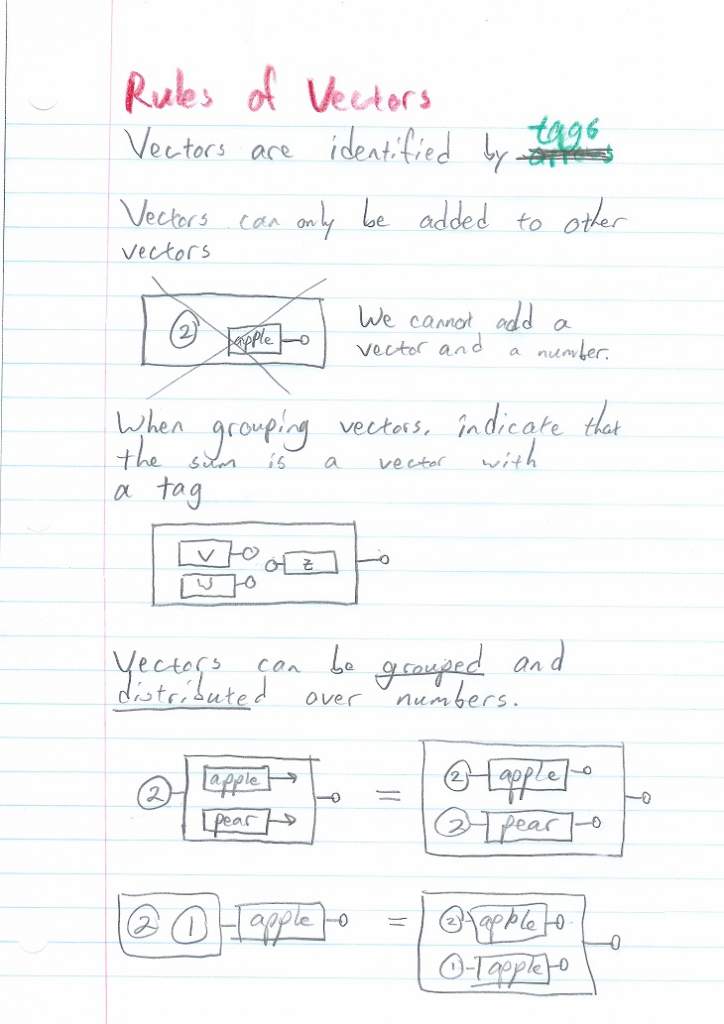 Rules of Vectors
tags
Vectors are identified by arrows
Vectors can only be added to other
vectors
2 apple
We cannot add a
vector and a number.
When grouping vectors, indicate that
the sum is a vector with
a tag
V
W
z
Vectors can be grouped and
distributed over numbers.
2 apple = 2 apple
pear 2 pear
2 1 apple = 2 apple
1 apple